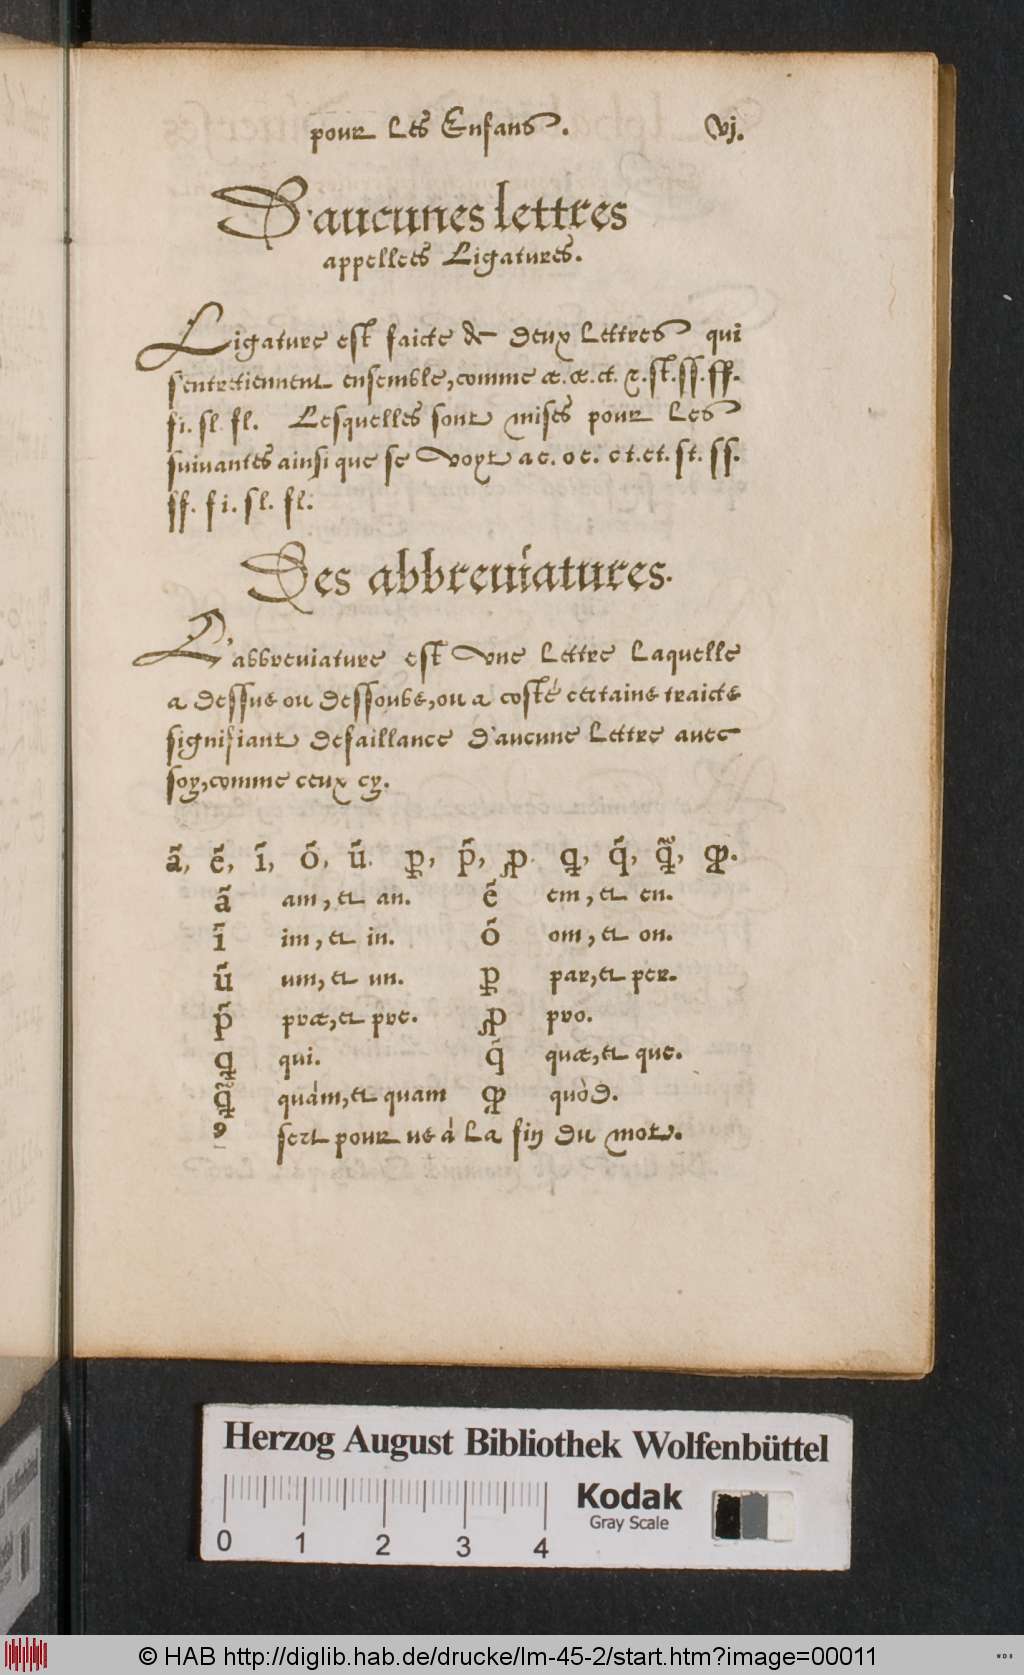 pour les Enfans. vj.
D'aucunes lettres
appellees Ligatures.
Ligature est faicte de deux lettres qui
s'entretiennent ensemble, comme æ. œ. ct. &. st. ss. ff.
fi. sl. fl. Lesquelles sont mises pour les
suivantes ainsi que se voyt ae. oe. ct. et. st. ss.
ff. fi. sl. fl.
Des abbreviatures.
L'abbreviature est une lettre laquelle
a dessus ou dessoubs, ou a costé certains traicts
signifiant defaillance d'aucune lettre avec
soy, comme ceux cy.
ã, ẽ, ĩ, õ, ũ. ꝑ, p̃, ꝓ. ꝗ, q̃, ꝗ̃, ꝙ.
ã am, et an. ẽ em, et en.
ĩ im, et in. õ om, et on.
ũ um, et un. ꝑ par, et per.
p̃ præ, et pre. ꝓ pro.
ꝗ qui. q̃ quæ, et que.
ꝗ̃ quàm, et quam ꝙ quòd.
ꝰ sert pour us à la fin du mot.
Herzog August Bibliothek Wolfenbüttel
Kodak
Gray Scale
0 1 2 3 4
© HAB http://diglib.hab.de/drucke/lm-45-2/start.htm?image=00011